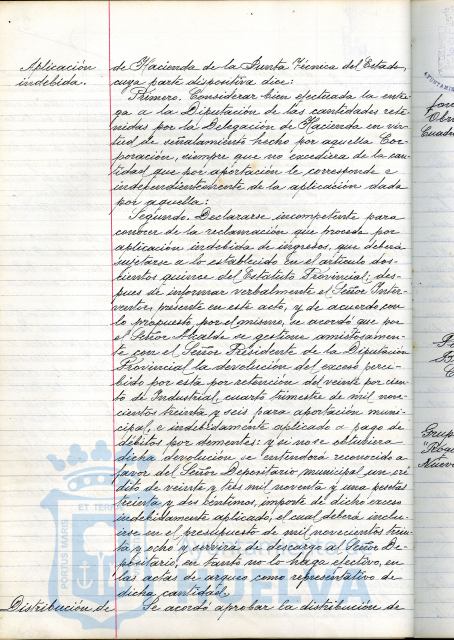 Aplicación
indebida.
de Hacienda de la Junta Técnica del Estado,
cuya parte dispositiva dice:
Primero. Considerar bien efectuada la entre-
ga a la Diputación de las cantidades rete-
nidas por la Delegación de Hacienda en vir-
tud de señalamiento hecho por aquella Cor-
poración, siempre que no excediera de la can-
tidad que por aportación le corresponde e
independientemente de la aplicación dada
por aquella:
Segundo. Declararse incompetente para
conocer de la reclamación que proceda por
aplicación indebida de ingresos, que deberá
sujetarse a lo establecido en el artículo dos-
cientos quince del Estatuto Provincial; des-
pues de informar verbalmente el Señor Inter-
ventor, presente en este acto, y de acuerdo con
lo propuesto por el mismo, se acordó que por
el Señor Alcalde se gestione amistosamen-
te con el Señor Presidente de la Diputación
Provincial la devolución del exceso perci-
bido por esta por retención del veinte por cien-
to de Industrial, cuarto trimestre de mil nove-
cientos treinta y seis para aportación muni-
cipal, e indebidamente aplicado a pago de
débitos por dementes: y si no se obtuviera
dicha devolución se entenderá reconocido a
favor del Señor Depositario municipal un cré-
dito de veinte y tres mil noventa y una pesetas
treinta y dos céntimos, importe de dicho exceso
indebidamente aplicado, el cual deberá inclu-
irse en el presupuesto de mil novecientos trein-
ta y ocho y servirá de descargo al Señor De-
positario, en tanto no lo haga efectivo, en
las actas de arqueo como representativo de
dicha cantidad.
Distribución de
Se acordó aprobar la distribución de
ET TERRA
PORTUS MARIS
Obra
Cuadr
Grup
Nuevo